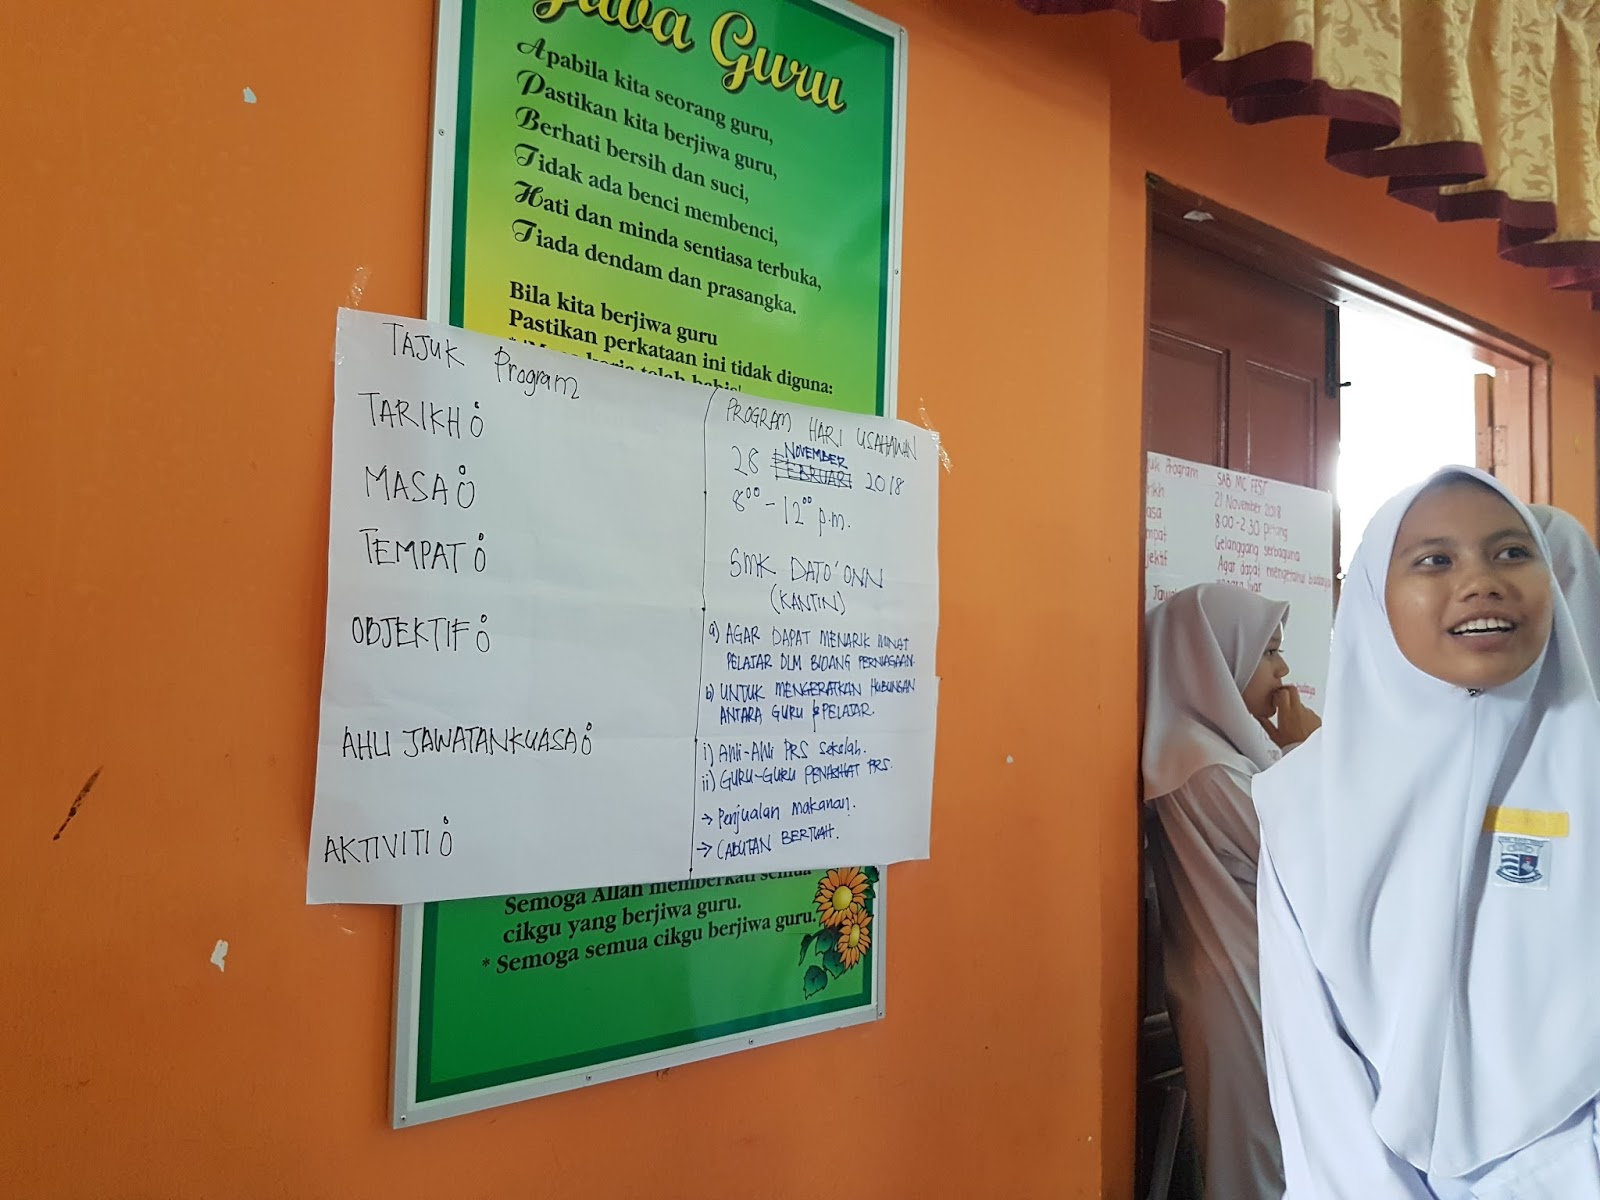 Jiwa Guru
Apabila kita seorang guru,
Pastikan kita berjiwa guru,
Berhati bersih dan suci,
Tidak ada benci membenci,
Hati dan minda sentiasa terbuka,
Tiada dendam dan prasangka.
Bila kita berjiwa guru
Pastikan perkataan ini tidak diguna:
TAJUK Program
PROGRAM HARI USAHAWAN
TARIKH:
NOVEMBER
28 FEBRUARI 2018
MASA:
8⁰⁰ - 12⁰⁰ p.m.
TEMPAT:
SMK DATO' ONN
(KANTIN)
OBJEKTIF:
a) AGAR DAPAT MENARIK MINAT
PELAJAR DLM BIDANG PERNIAGAAN.
b) UNTUK MENGERATKAN HUBUNGAN
ANTARA GURU & PELAJAR.
AHLI JAWATANKUASA:
i) Ahli-Ahli PRS sekolah.
ii) GURU-GURU PENASIHAT PRS.
AKTIVITI:
→ Penjualan makanan.
→ CABUTAN BERTUAH.
Semoga Allah memberkati semua
cikgu yang berjiwa guru.
* Semoga semua cikgu berjiwa guru.
Program SAB MC FEST
21 November 2018
8.00 - 2.30 petang
Gelanggang serbaguna
Agar dapat mengetahui budaya